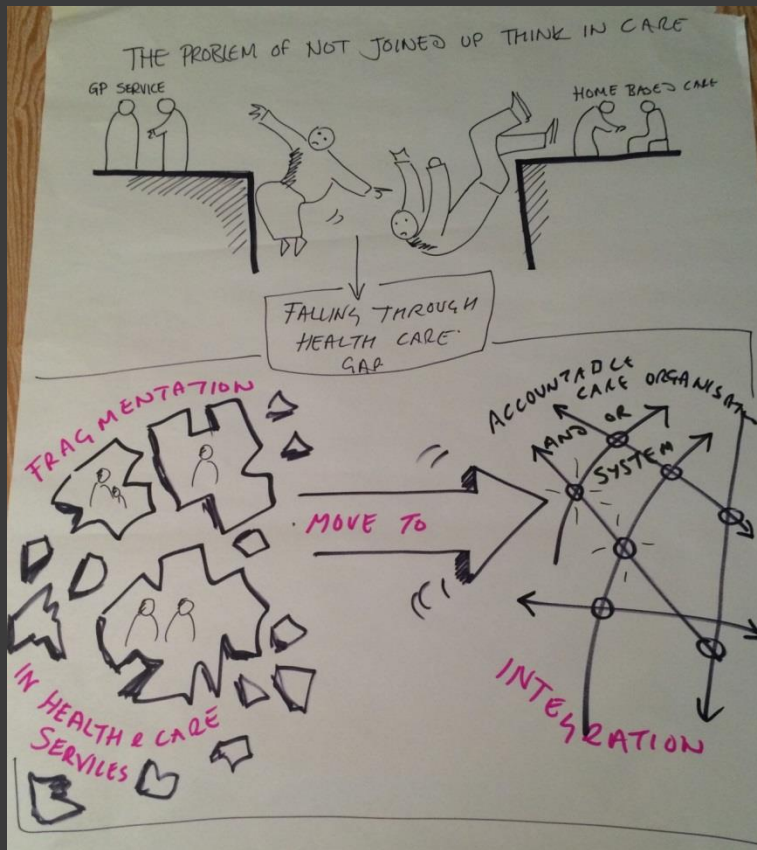 THE PROBLEM OF NOT JOINED UP THINK IN CARE
GP SERVICE
HOME BASED CARE
FALLING THROUGH
HEALTH CARE
GAP
FRAGMENTATION
IN HEALTH & CARE
SERVICES
MOVE TO
ACCOUNTABLE
CARE ORGANISAT
AND OR
SYSTEM
INTEGRATION